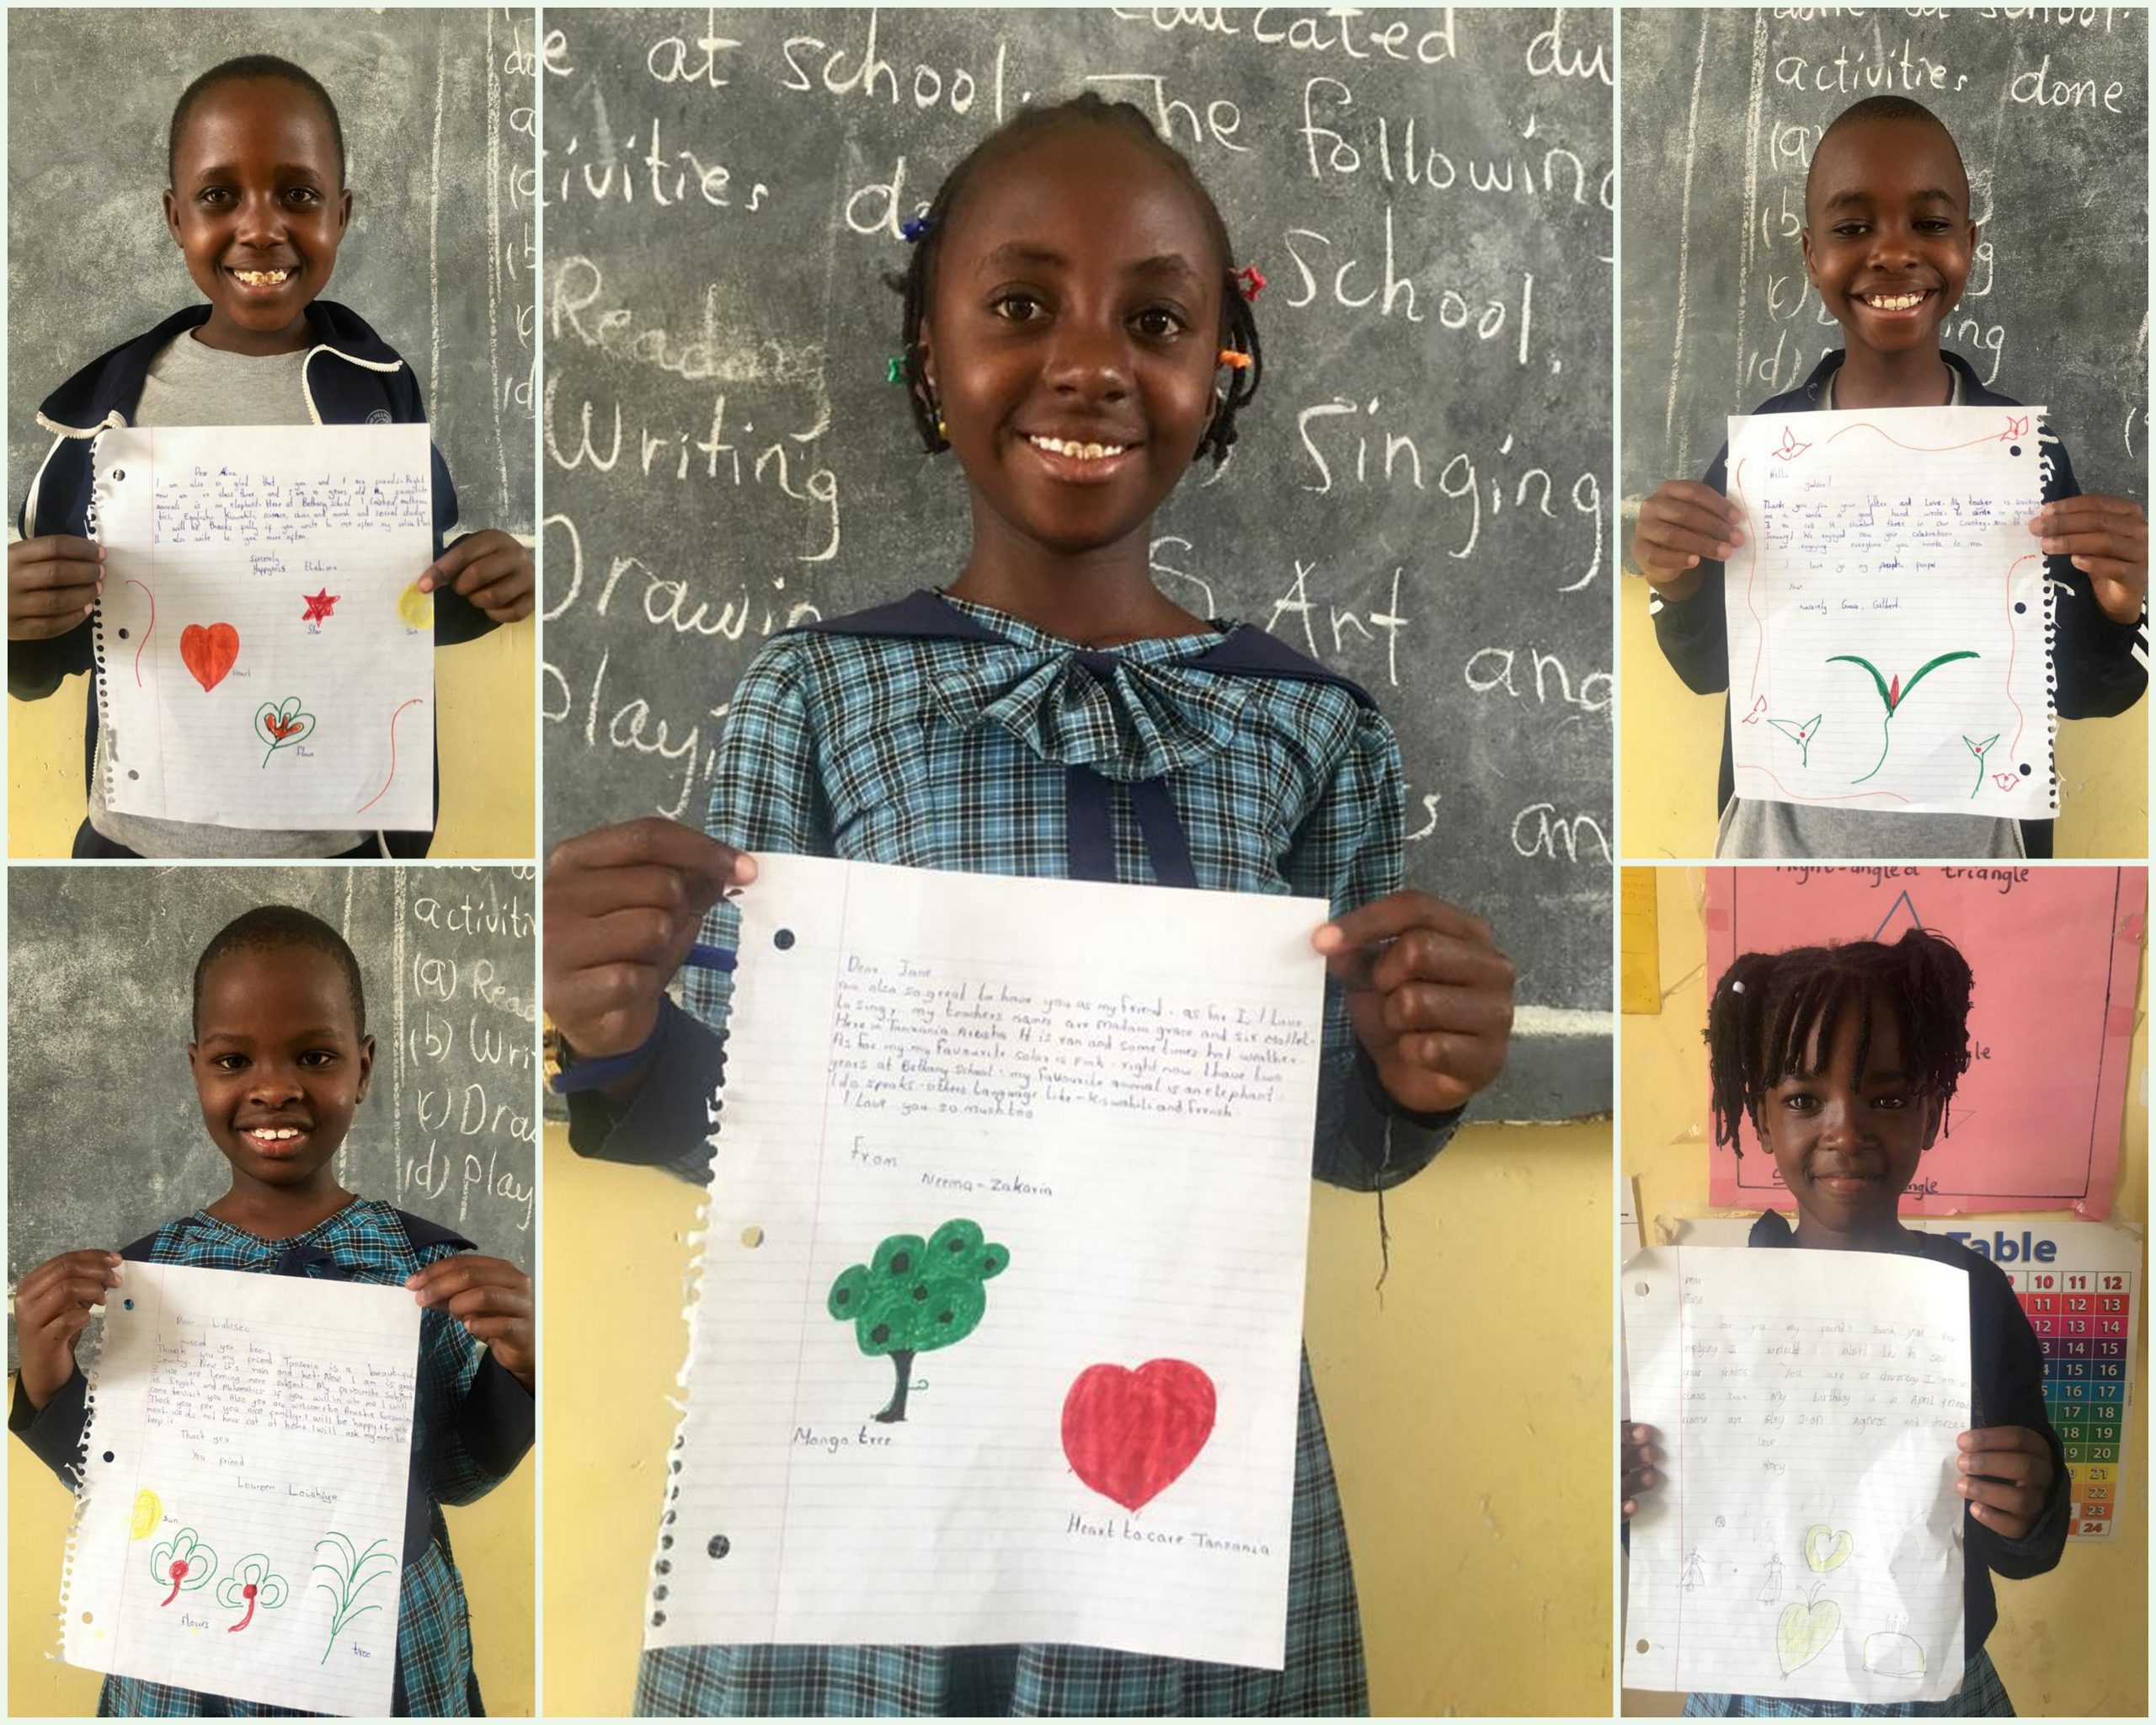 do
Dear
I am also so glad that you and I are friends Right
now am in class three and I am 10 years old My favourite
animals is an elephant. Here at Bethany School I
tics, English, Kiswahili, science, civics and moral and social studies
I will be thanks fully if you write to me often
also write to you more often
Sincerely
Happyness
Star
Sun
Heart
educated du
e at school. The following
tivities d School.
Reading
Writing Singing
Drawin Art and
Playi s an
Dear Jane
am also so great to have you as my friend. as for I, I Love
to sing, my teachers names are madam grace and sir mollel.
Here in Tanzania Arusha It is ran and some times hot weather.
As for my my favourite color is Pink. right now I have two
years at Bethany School. my favourite animal is an elephant.
I do speaks others Language Like - Kiswahili and French
I Love you so much too
From
Neema - Zakaria
Mango tree
Heart to care Tanzania
done at school.
activities done
(a)
(b) g
(c) D ing
(d)
Hello
Thank you for your letter and Love. My teacher is
me to write a good hand write. in grade
3 we call it standard three in our country. Now it is
January! We enjoyed new year celebration.
I am enjoying everytime you write to me.
I love
Sincerely Gilbert.
activiti
(a) Rea
(b) Wri
(c) Dra
(d) Play
Dear
I missed you
Thank you my friend. Tanzania is a
Country. Now it's rain and hot. Now I am is grade
3 we are lerning more subject. My favourite subject
is English and Matematics If you will I will
come to visit you Also you are welcome to Arusha Tanzania
Thack you for you nice family. I will be happy if we
meet. we do not have cat at home I will ask my mom to
keep it.
Thack you
You friend
Loureen Loishiye
Sun
flowrs
tree
Right-angled triangle
le
ngle
Table
10 11 12
11 12 13
12 13 14
13 14 15
14 15 16
15 16 17
17 18
18 19
19 20
21
22
23
24
Dear
you my friend? thank you for
replying I would
your You are so charming I am in
class two My birthday is in April friends
name are and dorcas
love